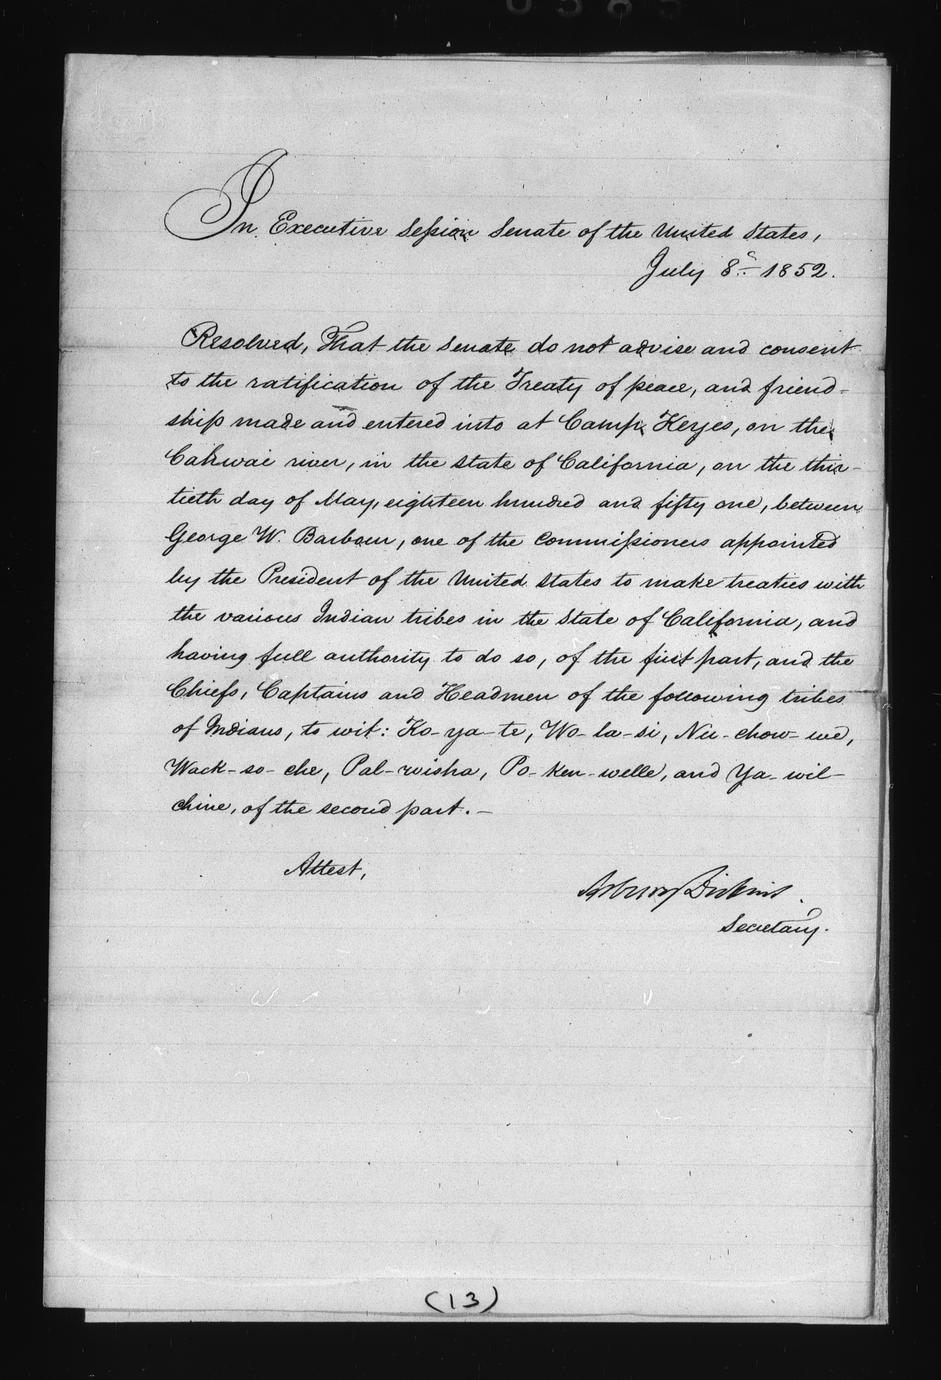 In Executive Session Senate of the United States,
July 8th 1852.
Resolved, That the Senate do not advise and consent
to the ratification of the Treaty of peace, and friend-
ship made and entered into at Camp Keyes, on the
Cahwai river, in the State of California, on the thir-
tieth day of May, eighteen hundred and fifty one, between
George W. Barbour, one of the Commissioners appointed
by the President of the United States to make treaties with
the various Indian tribes in the State of California, and
having full authority to do so, of the first part, and the
Chiefs, Captains and Headmen of the following tribes
of Indians, to wit: Ko-ya-te, Wo-la-si, Nu-chow-we,
Wack-so-che, Pal-wisha, Po-ken-welle, and Ya-wil-
chine, of the second part.—
Attest,
Asbury Dickins.
Secretary.
(13)